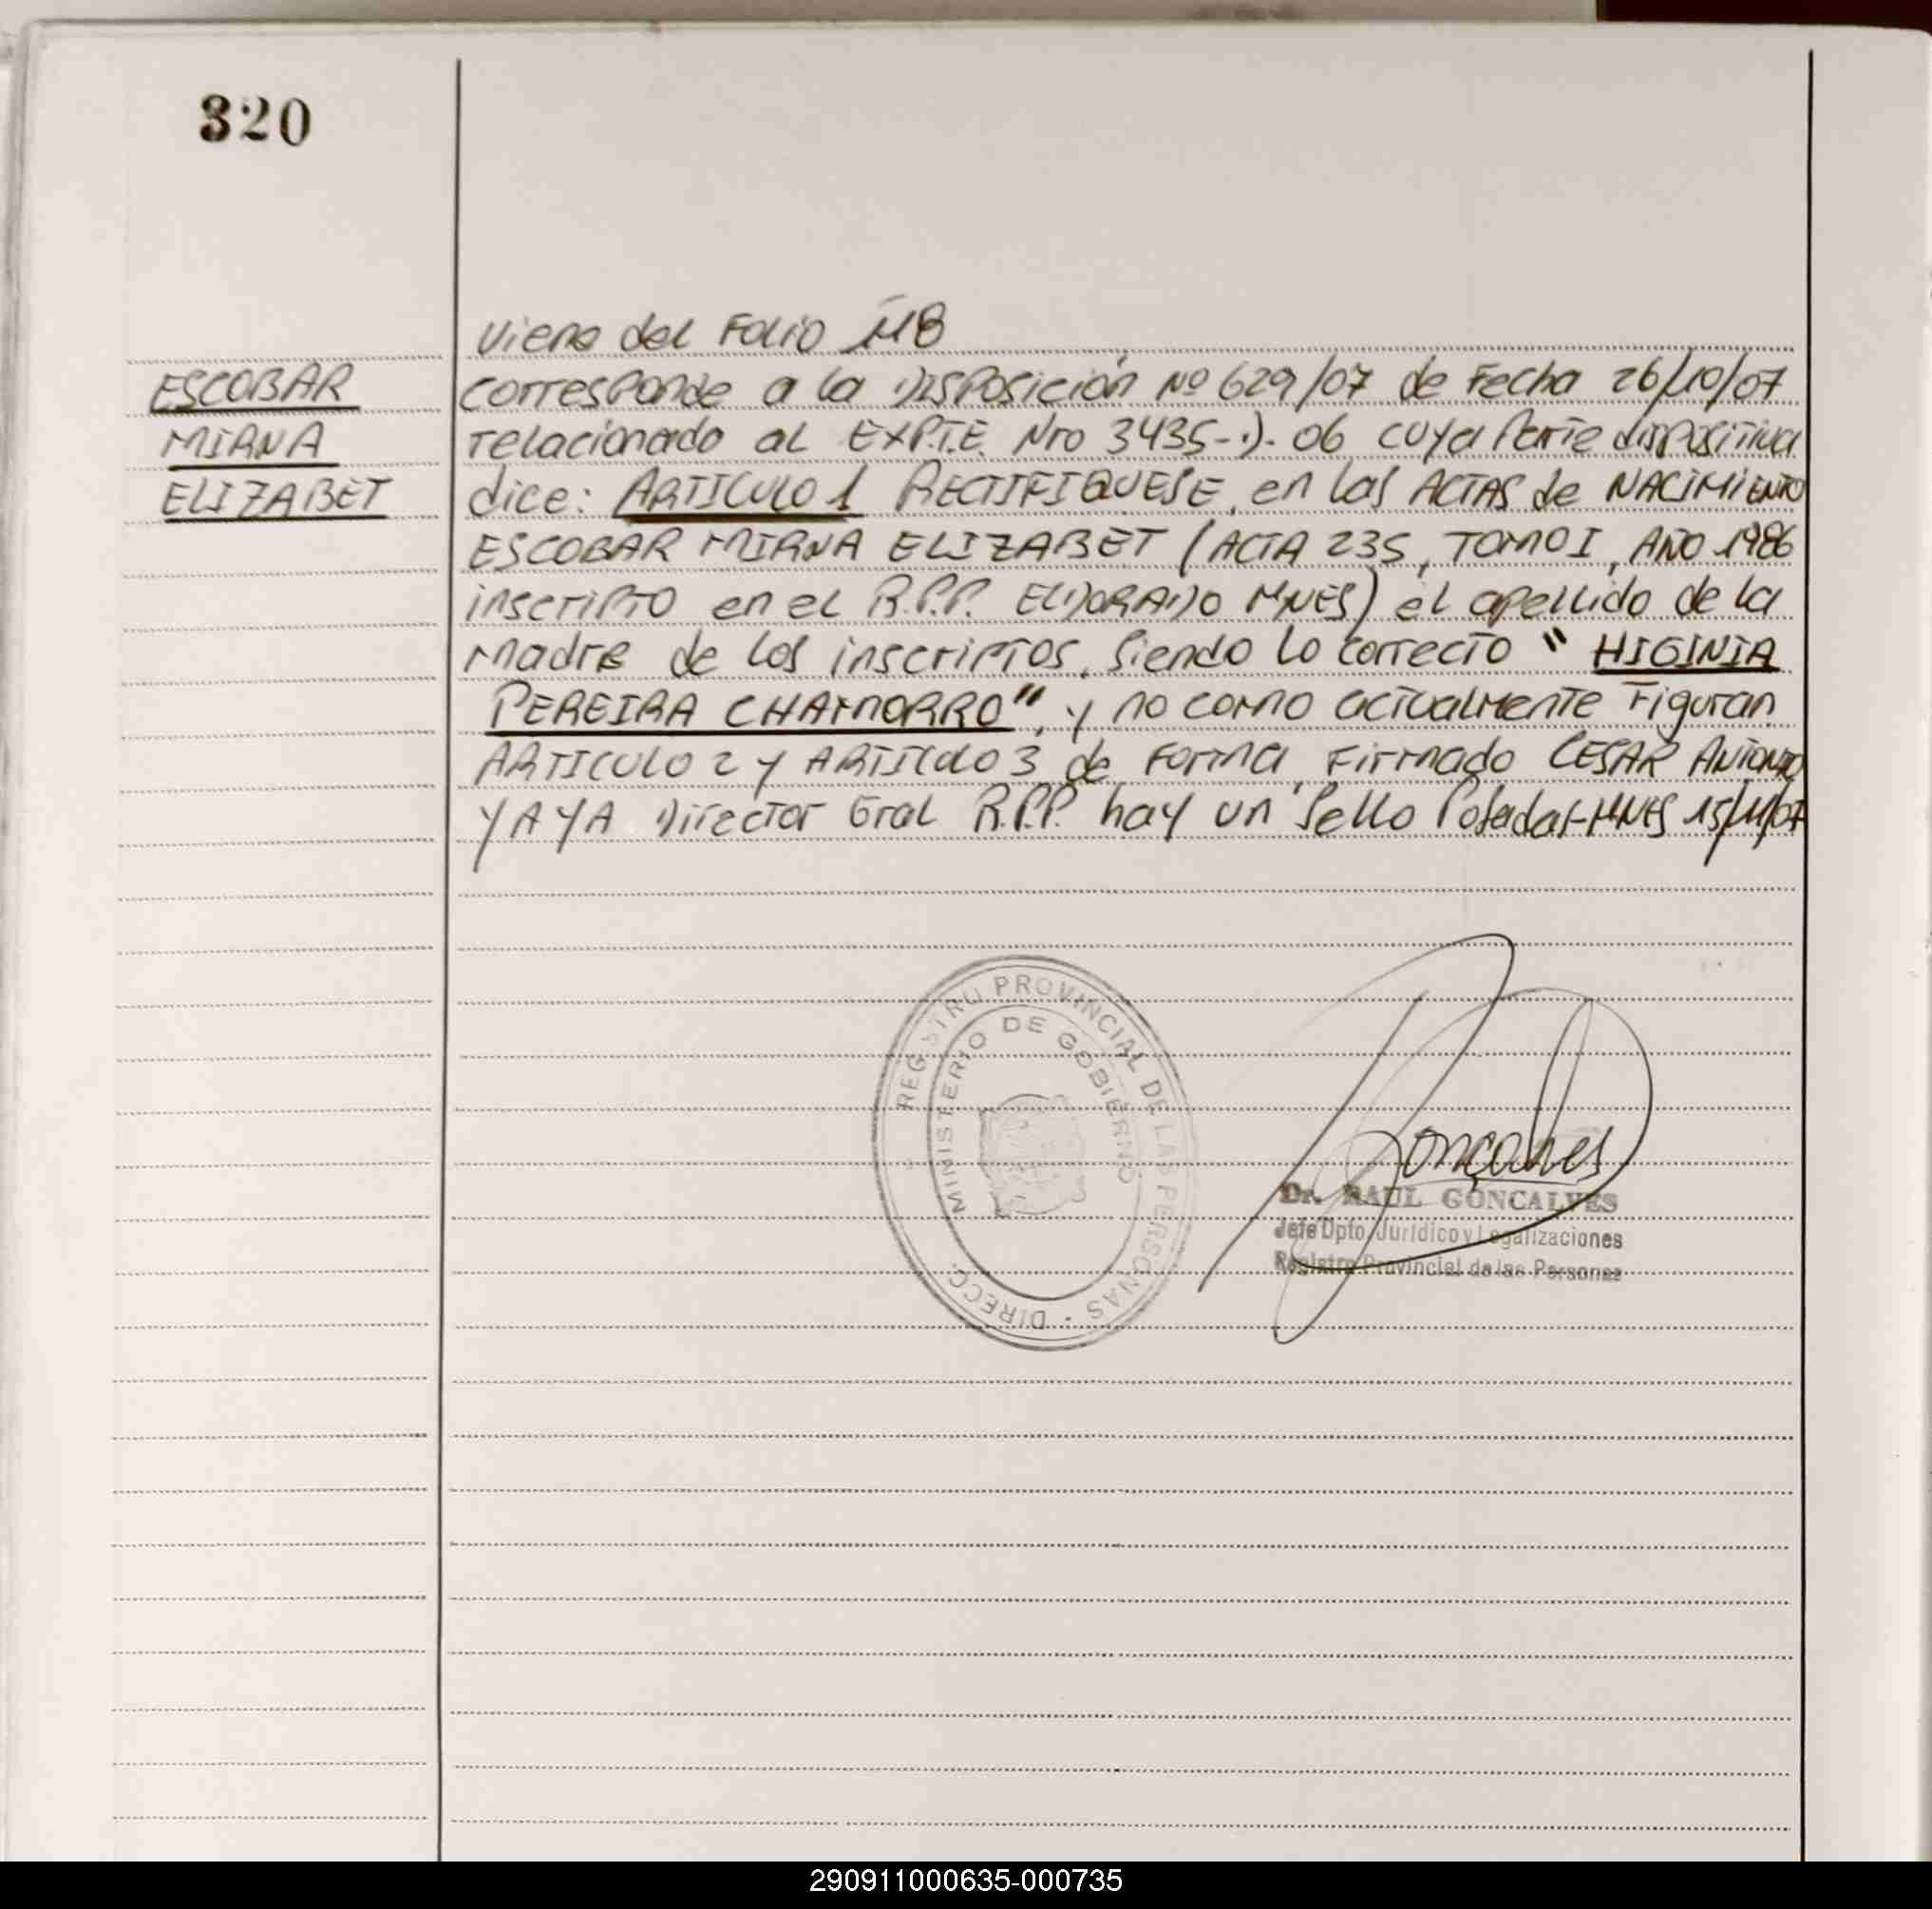 320
Viene del Folio 118
ESCOBAR
MIRNA
ELIZABET
corresponde a la DISPOSICIÓN Nº 629/07 de Fecha 26/10/07
relacionado al EXP.T.E. Nro 3435-D-06 cuya Parte dispositiva
dice: ARTICULO 1 RECTIFIQUESE, en las ACTAS de NACIMIENTO
ESCOBAR MIRNA ELIZABET (ACTA 235, TOMO I, AÑO 1986
inscripto en el R.P.P. ELDORADO MNES) el apellido de la
Madre de los inscriptos, Siendo lo correcto " HIGINIA
PEREIRA CHAMORRO", y no como actualmente Figuran
ARTICULO 2 y ARTICULO 3 de Forma, Firmado CESAR ANTONIO
YAYA Director Gral R.P.P. hay un Sello Posadas-MNES 15/11/07
REGISTRO PROVINCIAL DE LAS PERSONAS - DIRECC.
MINISTERIO DE GOBIERNO
Goncalves
Dr. RAUL GONCALVES
Jefe Dpto. Jurídico y Legalizaciones
Registro Provincial de las Personas
290911000635-000735